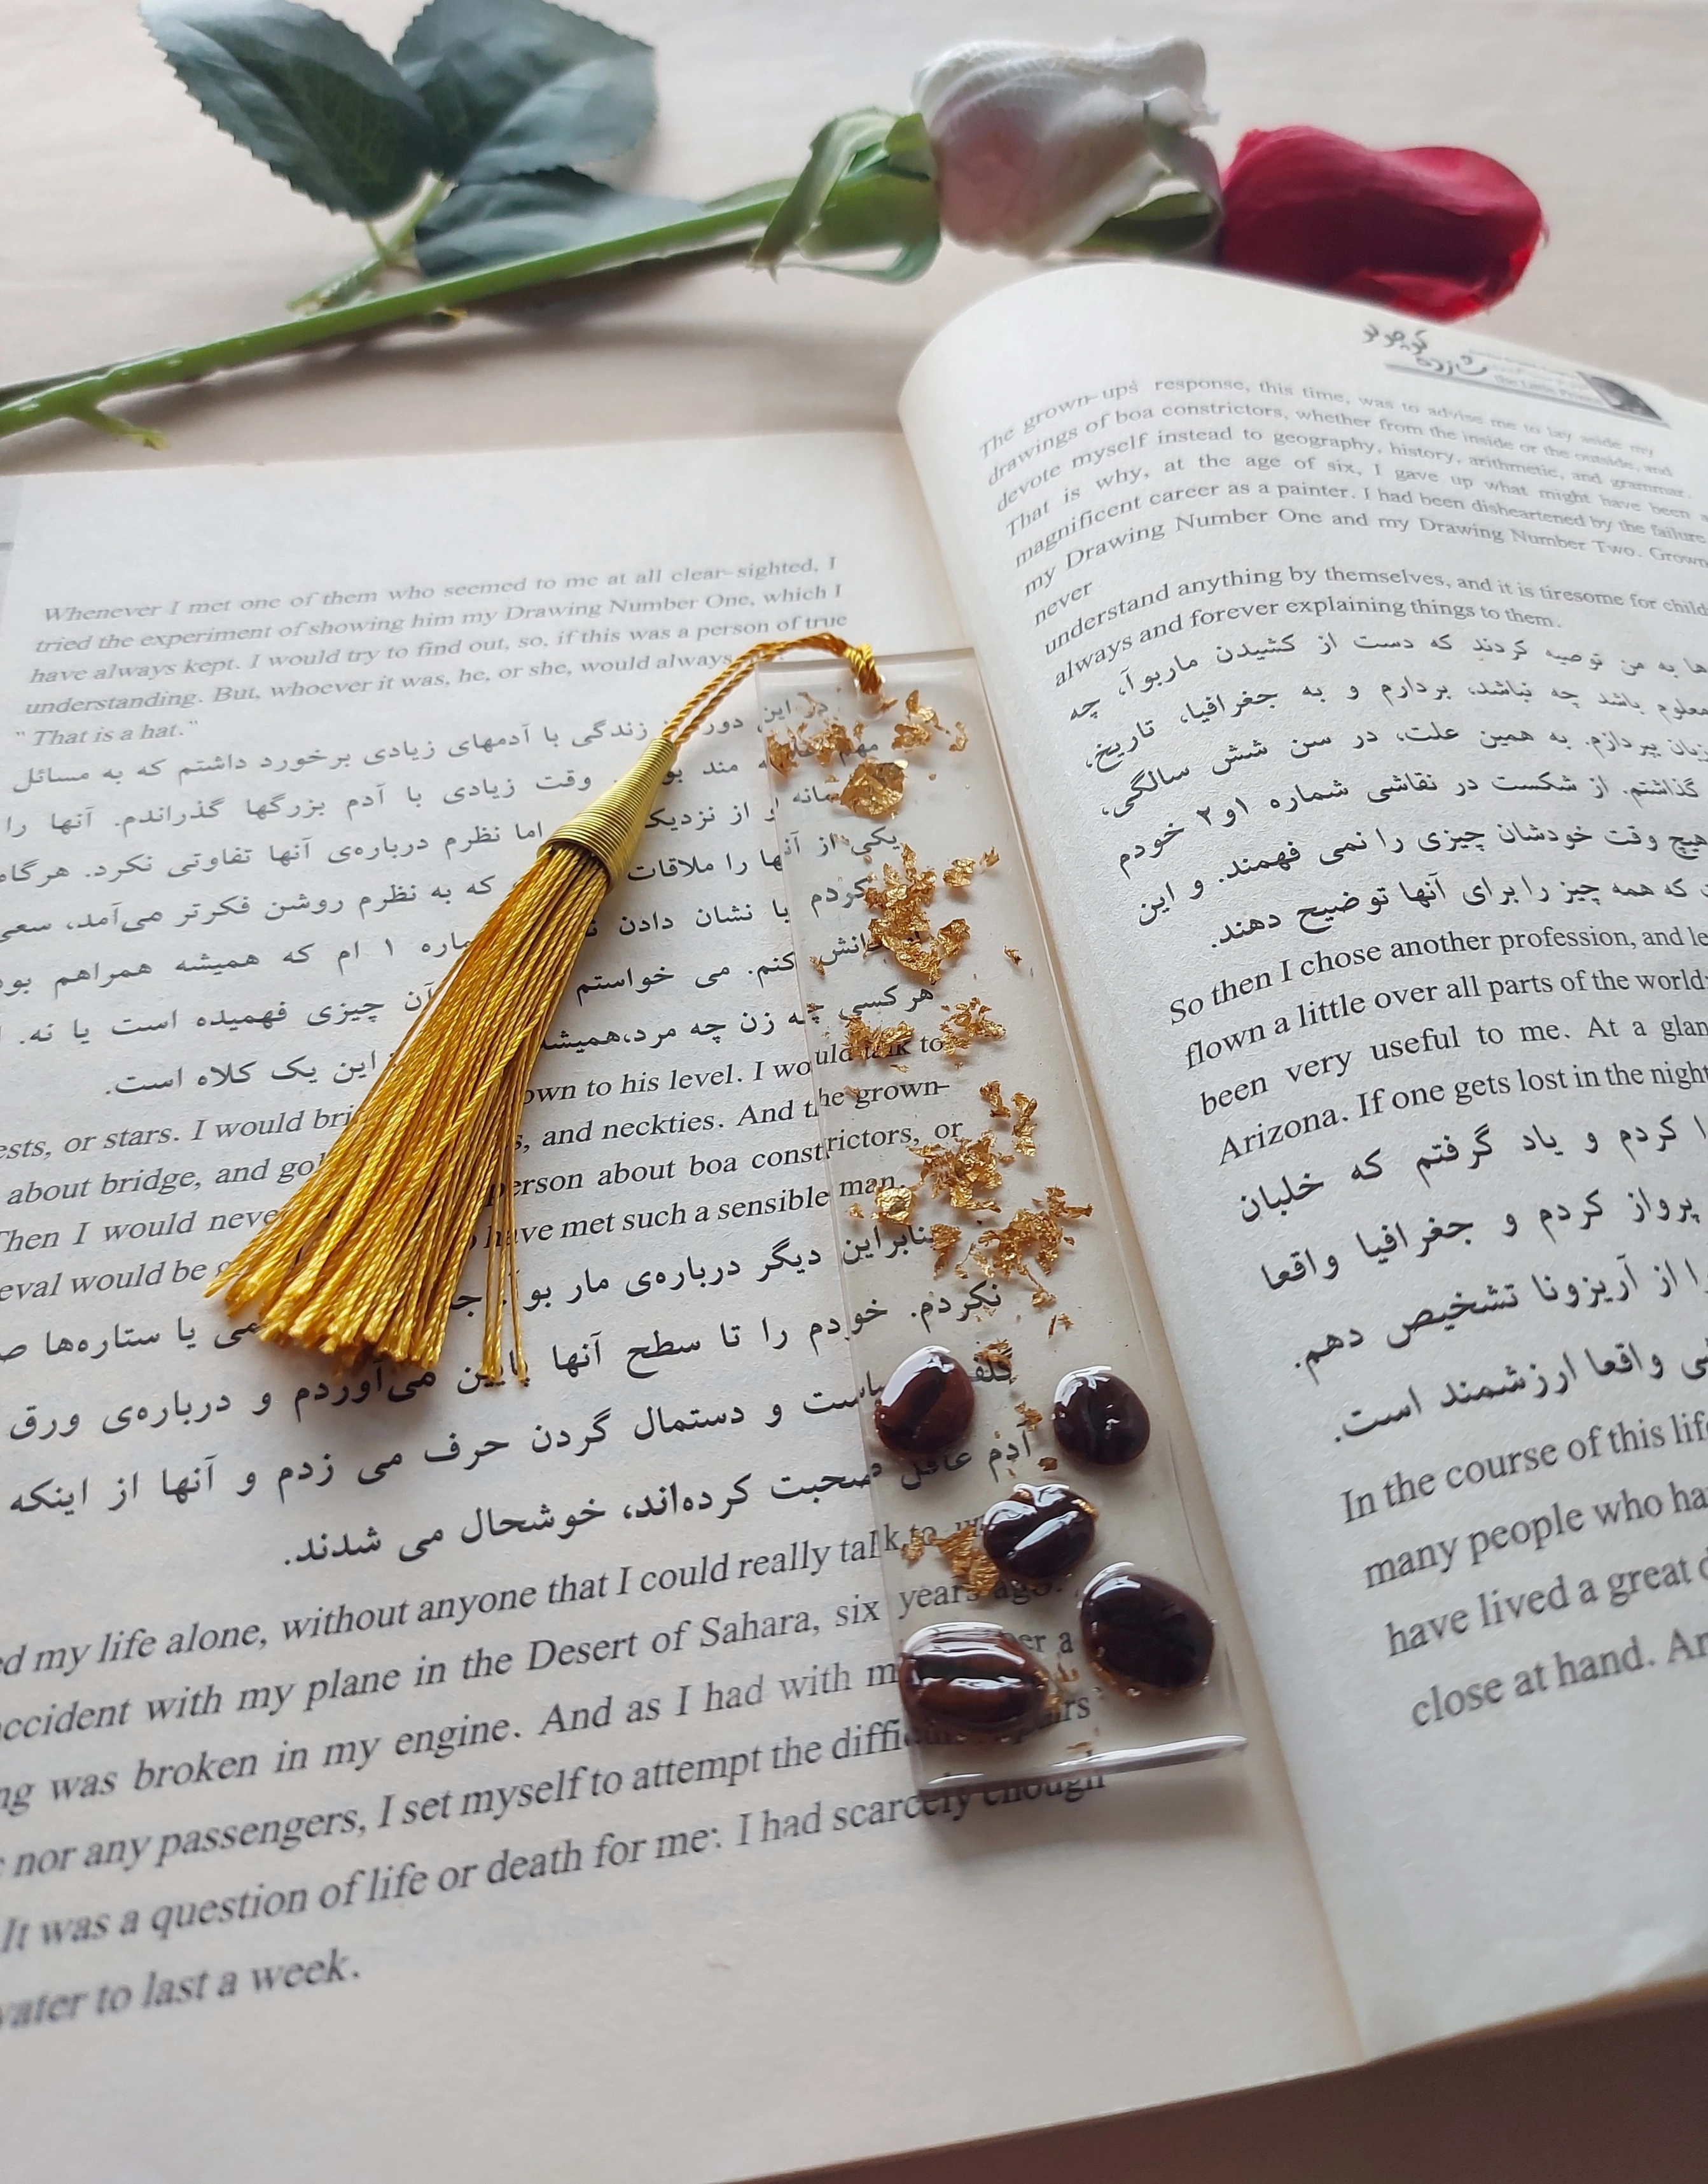 Whenever I met one of them who seemed to me at all clear-sighted, I
tried the experiment of showing him my Drawing Number One, which I
have always kept. I would try to find out, so, if this was a person of true
understanding. But, whoever it was, he, or she, would always
" That is a hat."
در این دور زندگی با آدمهای زیادی برخورد داشتم که به مسائل
مند وقت زیادی با آدم بزرگها گذراندم. آنها را
از نزدیک اما نظرم درباره‌ی آنها تفاوتی نکرد. هرگاه
یکی از آنها را ملاقات که به نظرم روشن فکرتر می‌آمد، سعی
کردم با نشان دادن ۱ ام که همیشه همراهم
کنم. می خواستم آن چیزی فهمیده است یا نه.
هرکسی چه زن چه مرد،همیشه این یک کلاه است.
ests, or stars. I would own to his level. I would talk to
about bridge, and and neckties. And the grown-
Then I would never person about boa constrictors, or
eval would be have met such a sensible man.
بنابراین دیگر درباره‌ی مار بوآ یا ستاره‌ها
نکردم. خودم را تا سطح آنها پایین می‌آوردم و درباره‌ی ورق
گلف سیاست و دستمال گردن حرف می زدم و آنها از اینکه
آدم عاقل صحبت کرده‌اند، خوشحال می شدند.
ed my life alone, without anyone that I could really talk to
accident with my plane in the Desert of Sahara, six years ago.
ng was broken in my engine. And as I had with er a
nor any passengers, I set myself to attempt the difficult
It was a question of life or death for me: I had scarcely enough
water to last a week.
شازده کوچولو
The Little Prince
The grown-ups' response, this time, was to advise me to lay aside my
drawings of boa constrictors, whether from the inside or the outside, and
devote myself instead to geography, history, arithmetic, and grammar.
That is why, at the age of six, I gave up what might have been a
magnificent career as a painter. I had been disheartened by the failure
my Drawing Number One and my Drawing Number Two. Grown
never
understand anything by themselves, and it is tiresome for child
always and forever explaining things to them.
ها به من توصیه کردند که دست از کشیدن ماربوآ، چه
معلوم باشد چه نباشد، بردارم و به جغرافیا، تاریخ،
زبان بپردازم. به همین علت، در سن شش سالگی،
گذاشتم. از شکست در نقاشی شماره ۱و۲ خودم
هیچ وقت خودشان چیزی را نمی فهمند. و این
که همه چیز را برای آنها توضیح دهند.
So then I chose another profession, and le
flown a little over all parts of the world;
been very useful to me. At a glan
Arizona. If one gets lost in the night
کردم و یاد گرفتم که خلبان
پرواز کردم و جغرافیا واقعا
را از آریزونا تشخیص دهم.
واقعا ارزشمند است.
In the course of this life
many people who ha
have lived a great d
close at hand. An